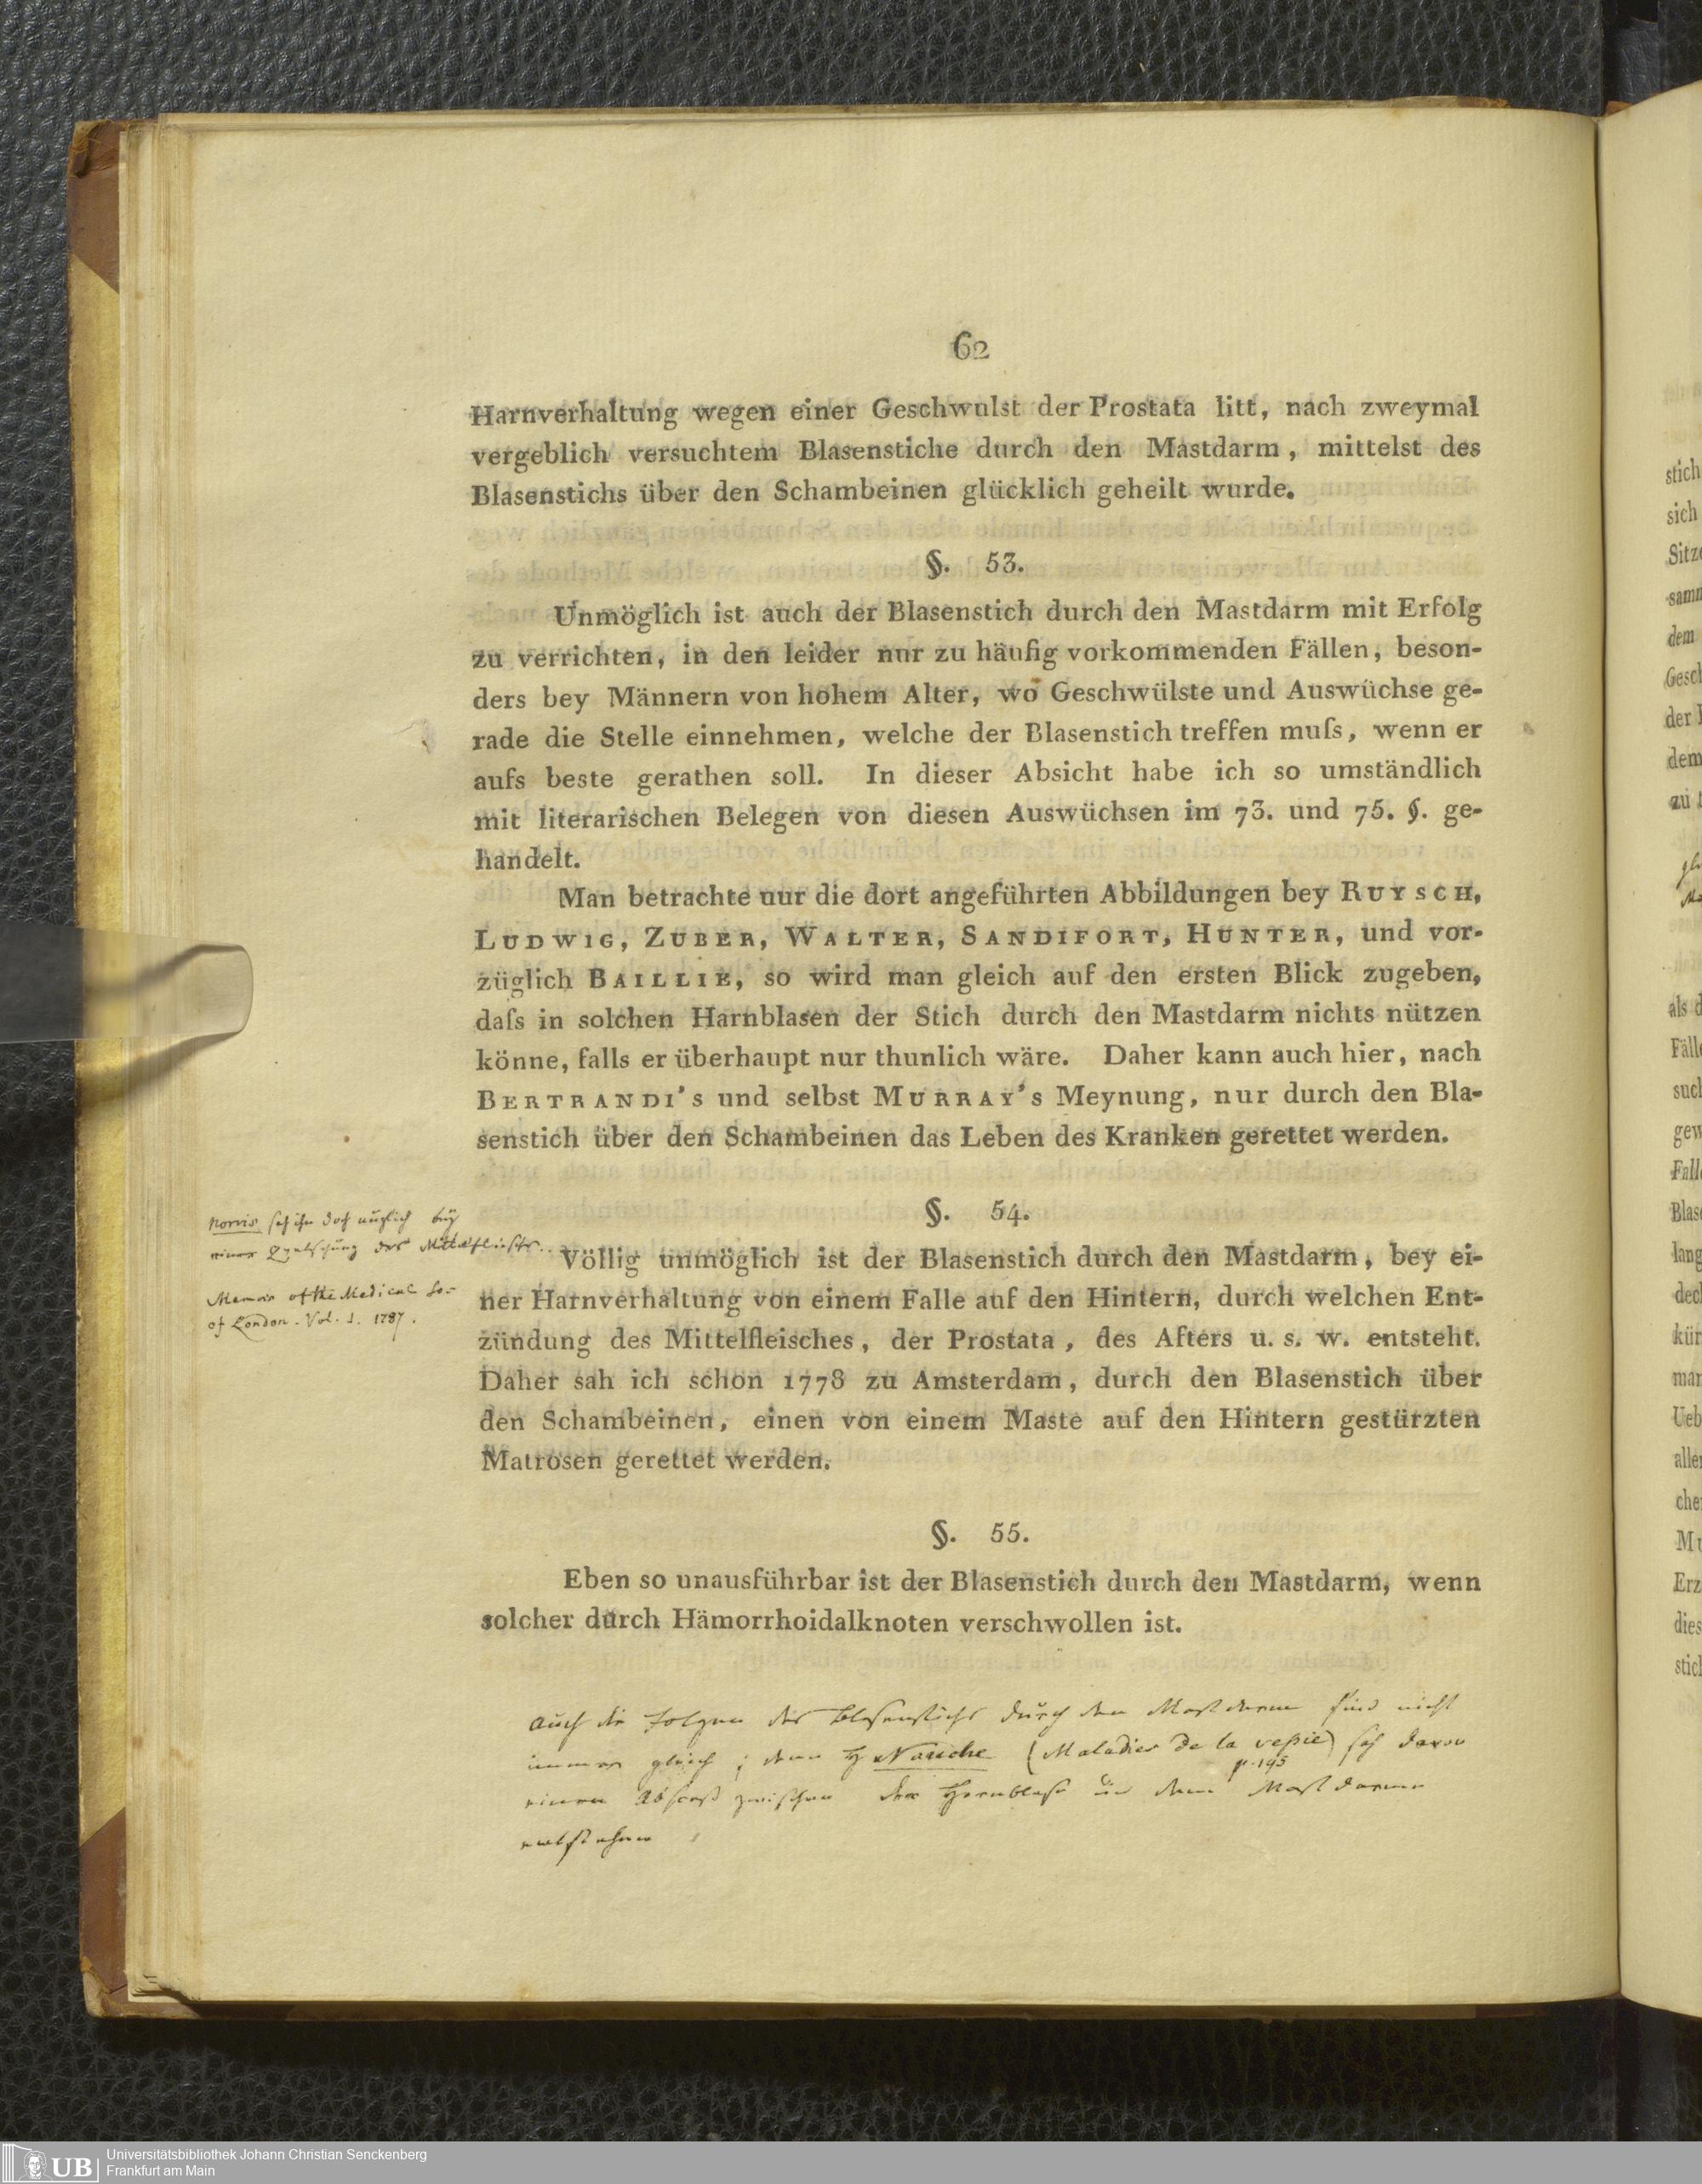 62
Harnverhaltung wegen einer Geschwulst der Prostata litt, nach zweymal
vergeblich versuchtem Blasenstiche durch den Mastdarm, mittelst des
Blasenstichs über den Schambeinen glücklich geheilt wurde.
§. 53.
Unmöglich ist auch der Blasenstich durch den Mastdarm mit Erfolg
zu verrichten, in den leider nur zu häufig vorkommenden Fällen, beson-
ders bey Männern von hohem Alter, wo Geschwülste und Auswüchse ge-
rade die Stelle einnehmen, welche der Blasenstich treffen muſs, wenn er
aufs beste gerathen soll. In dieser Absicht habe ich so umständlich
mit literarischen Belegen von diesen Auswüchsen im 73. und 75. §. ge-
handelt.
Man betrachte nur die dort angeführten Abbildungen bey RUYSCH,
LUDWIG, ZUBER, WALTER, SANDIFORT, HUNTER, und vor-
züglich BAILLIE, so wird man gleich auf den ersten Blick zugeben,
daſs in solchen Harnblasen der Stich durch den Mastdarm nichts nützen
könne, falls er überhaupt nur thunlich wäre. Daher kann auch hier, nach
BERTRANDI's und selbst MURRAY's Meynung, nur durch den Bla-
senstich über den Schambeinen das Leben des Kranken gerettet werden.
§. 54.
Norris sah ihn doch möglich bey
einer Quetschung des Mittelfleisches.
Memoir of the Medical So-
of London. Vol. 1. 1787.
Völlig unmöglich ist der Blasenstich durch den Mastdarm, bey ei-
ner Harnverhaltung von einem Falle auf den Hintern, durch welchen Ent-
zündung des Mittelfleisches, der Prostata, des Afters u. s. w. entsteht.
Daher sah ich schon 1778 zu Amsterdam, durch den Blasenstich über
den Schambeinen, einen von einem Maste auf den Hintern gestürzten
Matrosen gerettet werden.
§. 55.
Eben so unausführbar ist der Blasenstich durch den Mastdarm, wenn
solcher durch Hämorrhoidalknoten verschwollen ist.
Auch die Folgen des Blasenstichs durch den Mastdarm sind nicht
immer gleich; denn H Nauche (Maladies de la vessie) sah davon
p. 195
einen Absceß zwischen der Harnblase und dem Mastdarme
entstehen
stich
sich
Sitz
samm
dem
Gesch
der
dem
zu
als d
Fäll
such
gew
Fall
Blas
lang
dec
kür
man
Ueb
alle
che
Mu
Erz
dies
stic
UB
Universitätsbibliothek Johann Christian Senckenberg
Frankfurt am Main